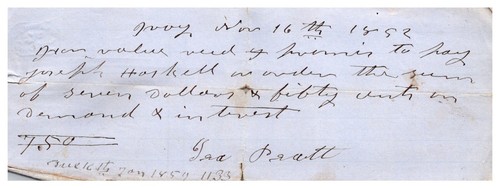 Troy Nov 16th 1852
For value recd I promis to pay
Joseph Haskell or order the sum
of seven dollars & fifty cents on
demand & interest
7.50
Geo Pratt
Jan 1854 1133